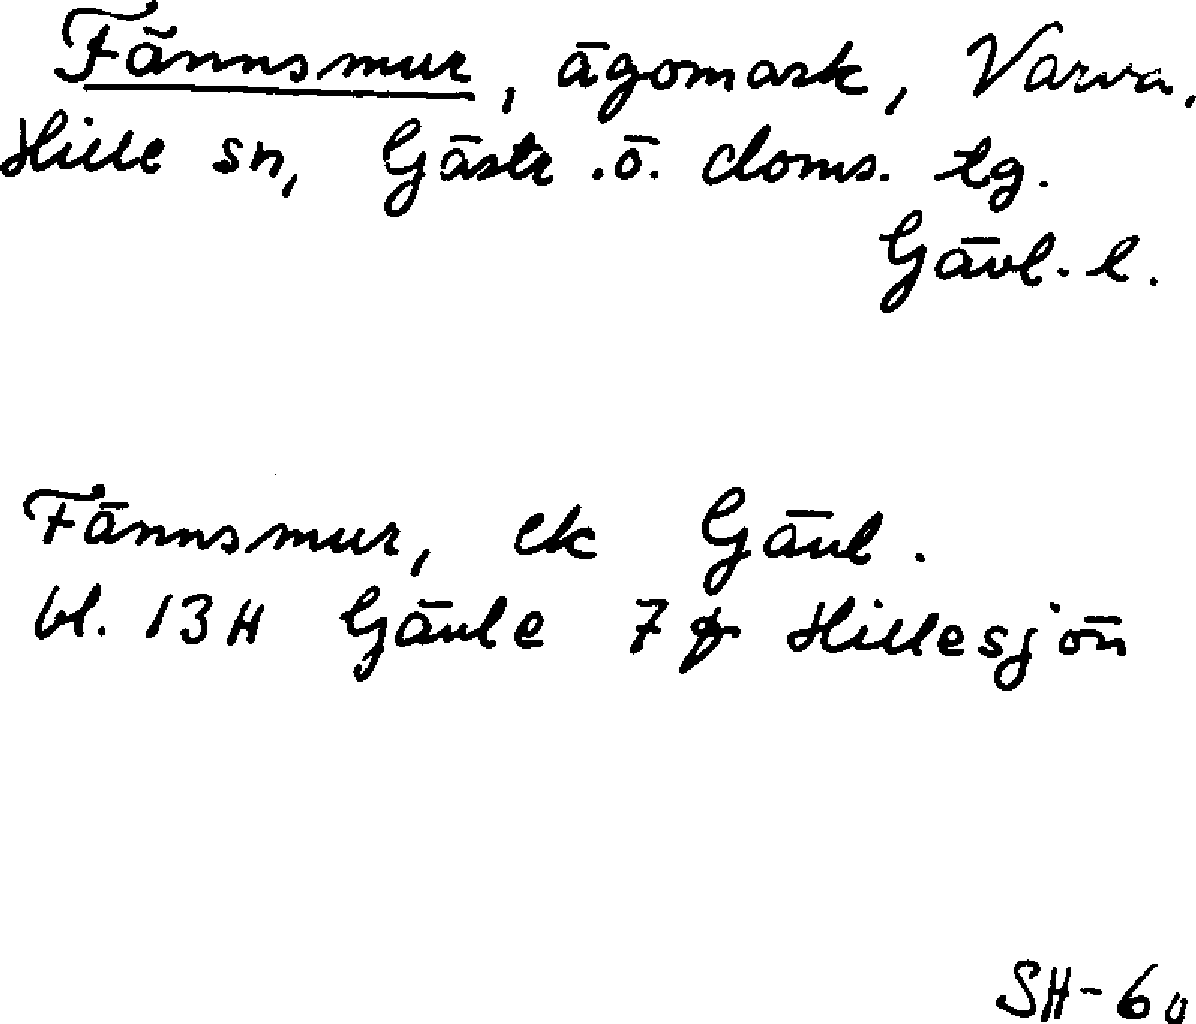 Fännsmur, ägomark, Varva,
Hille sn, Gästr. ö. doms. tg.
Gävl. l.
Fännsmur, ek Gävl.
bl. 13H Gävle 7f Hillesjön
SH-60